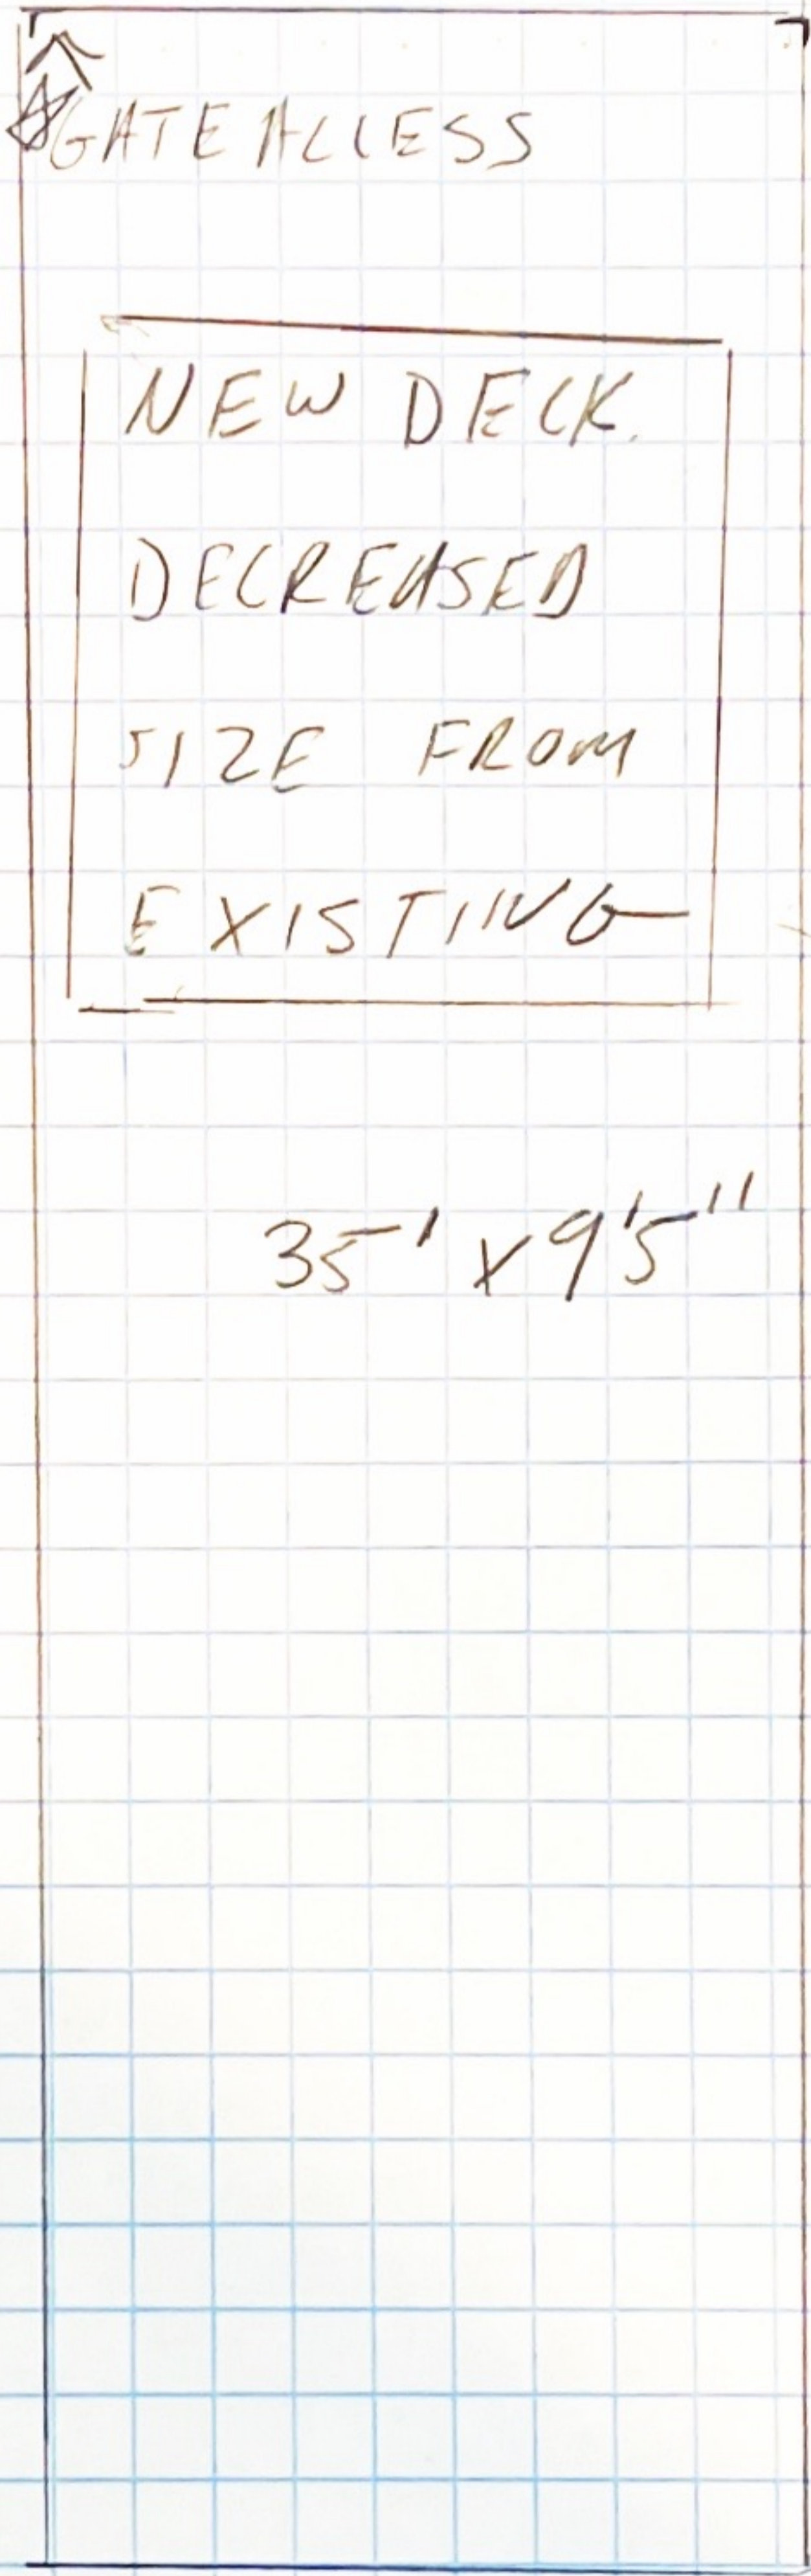 GATE ACCESS
NEW DECK
DECREASED
SIZE FROM
EXISTING
35' x 9'5"